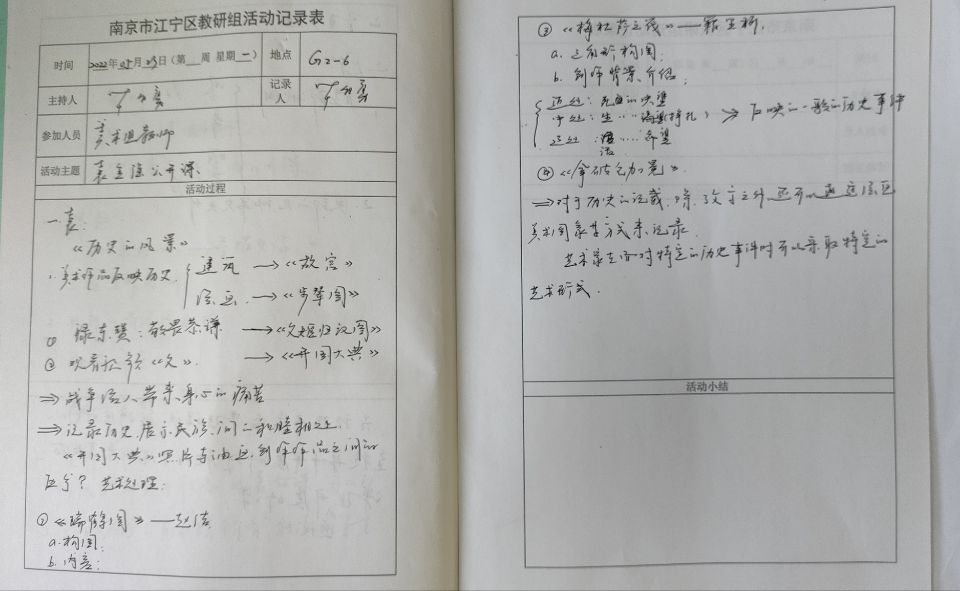 南京市江宁区教研组活动记录表
时间 2022年05月23日(第 周 星期一) 地点 G2-6
主持人 记录人
参加人员 美术组教师
活动主题 公开课
活动过程
一.袁:
《历史的风景》
1.美术作品反映历史 建筑 → 《故宫》
绘画 → 《步辇图》
① 禄东赞:敬畏恭谦 → 《文姬归汉图》
② 观看视频《文》. → 《开国大典》
⇒ 战争给人带来身心的痛苦
⇒ 记录历史,展示民族间的和睦相处
《开国大典》照片与油画创作作品之间的
区分?艺术处理:
②《瑞鹤图》——赵佶
a.构图:
b.内容:
③《梅杜萨之筏》——籍里柯.
a.三角形构图:
b.创作背景介绍:
近处:死亡的
中处:生 挣扎 ⇒ 反映的一般的历史事件
远处: 希望
④《拿破仑加冕》.
⇒ 对于历史的记载,除了文字之外,还可以通过绘画
美术图像等方式来记录.
艺术家在面对特定的历史事件时可以采取特定的
艺术形式.
活动小结